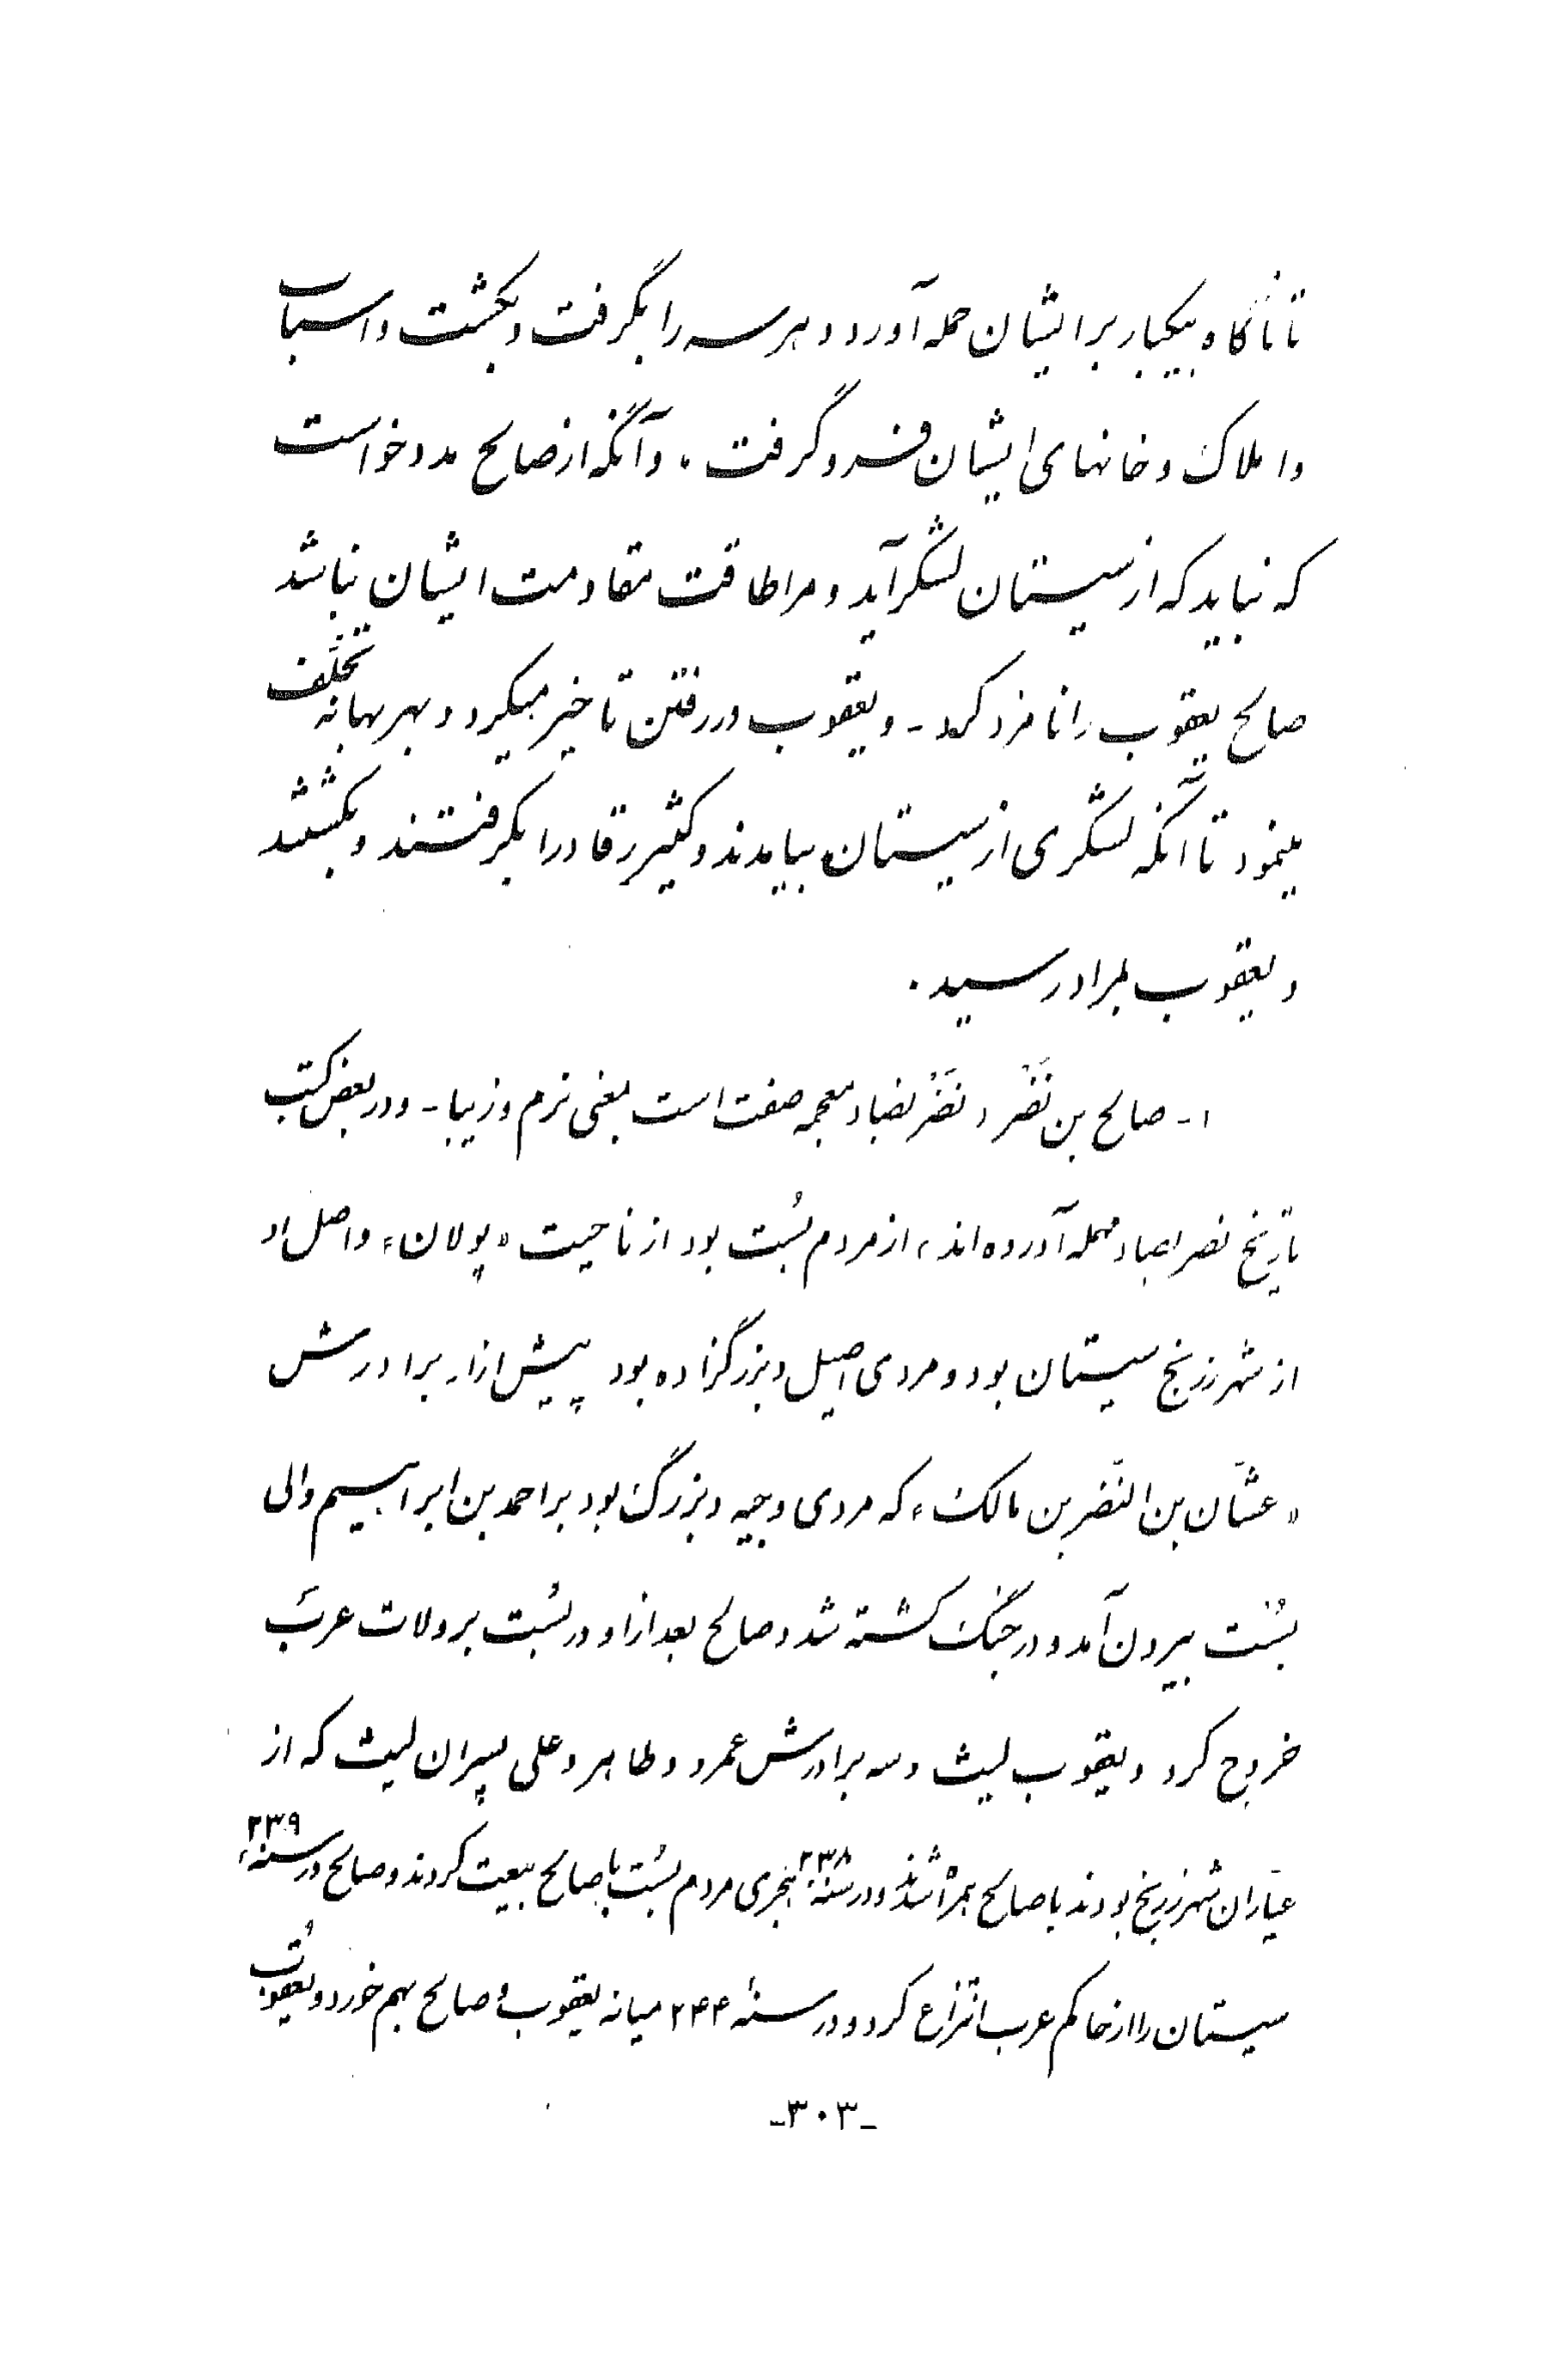 تا ناگاه بیکبار بر ایشان حمله آورد و هر سه را بگرفت و بکشت و اسباب
و املاک و خانهای ایشان فرو گرفت، و آنگه از صالح مدد خواست
که نباید که از سیستان لشکر آید و مرا طاقت مقاومت ایشان نباشد
صالح یعقوب را نامزد کرد - و یعقوب در رفتن تاخیر میکرد و بهر بهانه تخلّف
مینمود تا آنکه لشکری از سیستان بیامدند و کثیر رقاد را بگرفتند و بکشتند
و یعقوب بمراد رسید.
۱- صالح بن نَضْر و نَضْر بضاد معجمه صفت است بمعنی نرم و زیبا - و در بعض کتب
تاریخ نصر بصاد مهمله آورده‌اند، از مردم بُست بود از ناحیت «پولان» و اصل او
از شهر زرنج سیستان بود و مردی اصیل و بزرگزاده بود پیش از او برادرش
«غسّان بن النَّضر بن مالک» که مردی وجیه و بزرگ بود بر احمد بن ابراهیم والی
بُست بیرون آمد و در جنگ کشته شد و صالح بعد از او در بُست بر ولات عرب
خروج کرد و یعقوب لیث و سه برادرش عمرو و طاهر و علی پسران لیث که از
عیّاران شهر زرنج بودند با صالح همراه شدند و در سنهٔ ۲۳۸ هجری مردم بُست با صالح بیعت کردند و صالح در سنهٔ ۲۳۹
سیستان را از حاکم عرب انتزاع کرد و در سنهٔ ۲۴۴ میانه یعقوب و صالح بهم خورد و یعقوب
-۳۰۳-